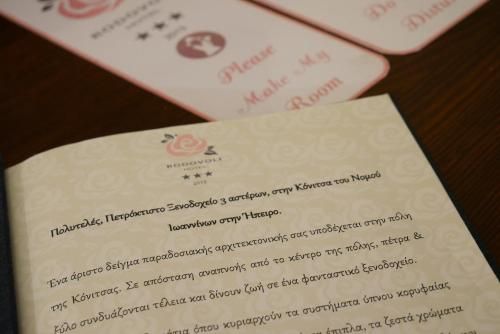 RODOVOLI
HOTEL
2013
Please
Make My
Room
Do
Distur
RODOVOLI
HOTEL
2013
Πολυτελές, Πετρόκτιστο Ξενοδοχείο 3 αστέρων, στην Κόνιτσα του Νομού
Ιωαννίνων στην Ήπειρο.
Ένα άριστο δείγμα παραδοσιακής αρχιτεκτονικής σας υποδέχεται στην πόλη
της Κόνιτσας. Σε απόσταση αναπνοής από το κέντρο της πόλης, πέτρα &
ξύλο συνδυάζονται τέλεια και δίνουν ζωή σε ένα φανταστικό ξενοδοχείο.
όπου κυριαρχούν τα συστήματα ύπνου κορυφαίας
έπιπλα, τα ζεστά χρώματα